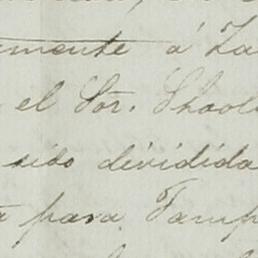 mente á Za
el Sor. Shool
sido dividida
para Tamp